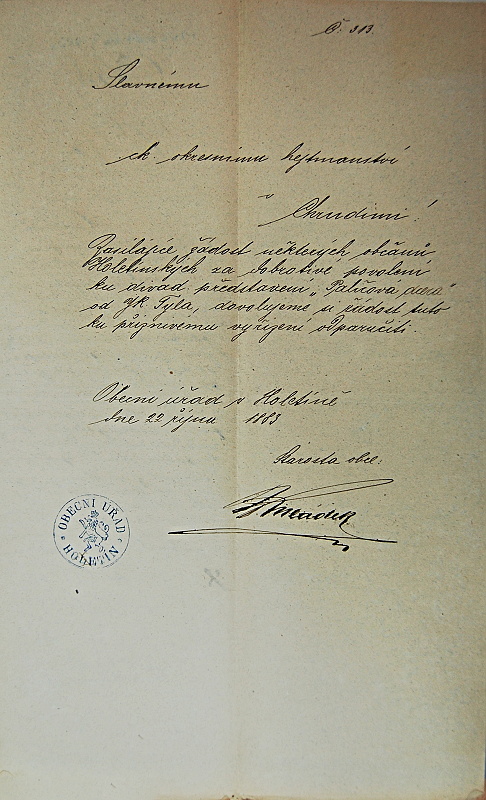 Č. 313.
Slavnému
ck. okresnímu hejtmanství
v
Chrudimi!
Zasílajíc žádost některých občanů
Holetínských za dobrotivé povolení
ku divad. představení „Paličova dcera"
od JK. Tyla, dovolujeme si žádost tuto
ku příznivému vyřízení odporučiti
Obecní úřad v Holetíně
dne 22 října 1883
Starosta obce:
OBECNÍ ÚŘAD
HOLETÍN